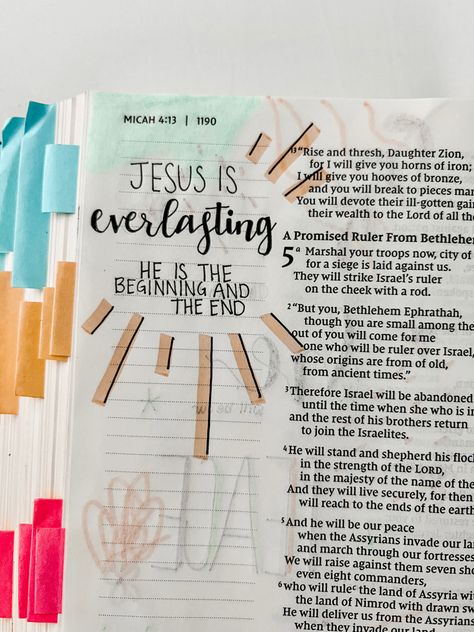 MICAH 4:13 | 1190
JESUS IS
everlasting
HE IS THE
BEGINNING AND
THE END
13 "Rise and thresh, Daughter Zion,
for I will give you horns of iron;
I will give you hooves of bronze,
and you will break to pieces
You will devote their ill-gotten
their wealth to the Lord of all
A Promised Ruler From Bethlehem
5 a Marshal your troops now, city of
for a siege is laid against us.
They will strike Israel's ruler
on the cheek with a rod.
2 "But you, Bethlehem Ephrathah,
though you are small among the
out of you will come for me
one who will be ruler over Israel,
whose origins are from of old,
from ancient times."
3 Therefore Israel will be abandoned
until the time when she who is
and the rest of his brothers return
to join the Israelites.
4 He will stand and shepherd his
in the strength of the LORD,
in the majesty of the name of the
And they will live securely, for then
will reach to the ends of the earth
5 And he will be our peace
when the Assyrians invade our
and march through our
We will raise against them seven
even eight commanders,
6 who will rule c the land of Assyria with
the land of Nimrod with drawn
He will deliver us from the Assyrians
when they invade our